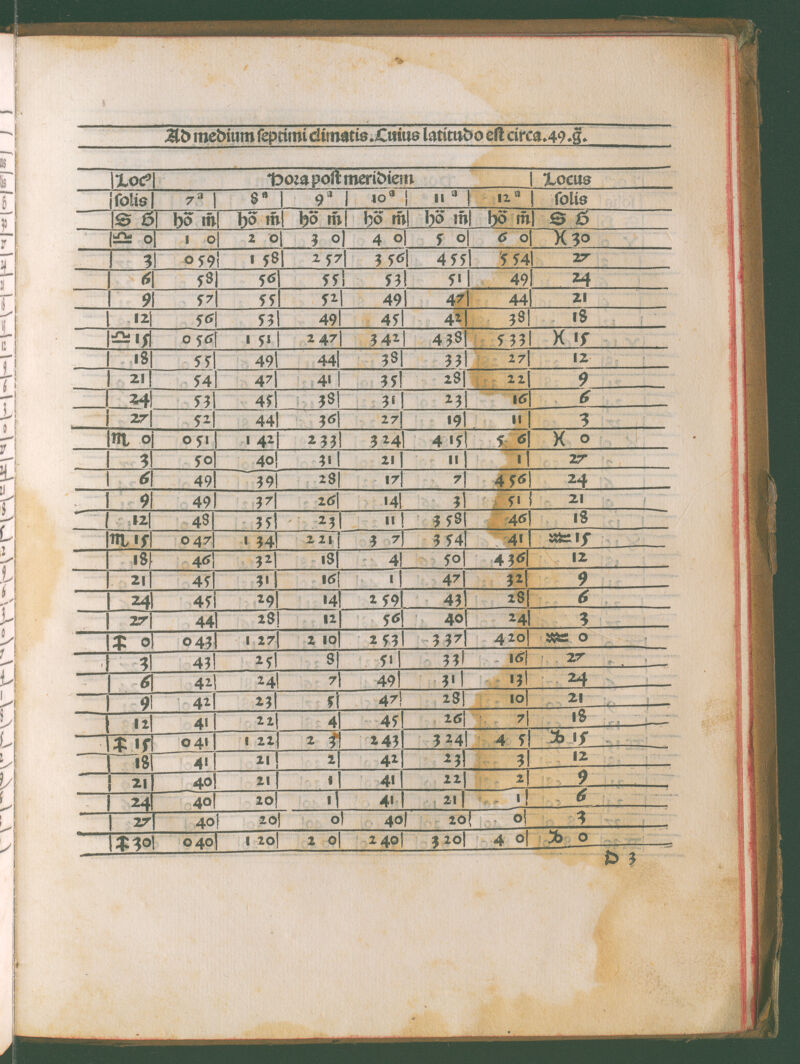 Ad medium septimi climatis. Cuius latitudo est circa. 49. g̃.
Locꝰ | Hora post meridiem | Locus
solis | 7ª | 8ª | 9ª | 10ª | 11ª | 12ª | solis
S G̃ | hõ m̃ | hõ m̃ | hõ m̃ | hõ m̃ | hõ m̃ | hõ m̃ | S G̃
♎ 0 | 1 0 | 2 0 | 3 0 | 4 0 | 5 0 | 6 0 | ♓ 30
3 | 0 59 | 1 58 | 2 57 | 3 56 | 4 55 | 5 54 | 27
6 | 58 | 56 | 55 | 53 | 51 | 49 | 24
9 | 57 | 55 | 52 | 49 | 47 | 44 | 21
12 | 56 | 53 | 49 | 45 | 42 | 38 | 18
♎ 15 | 0 56 | 1 51 | 2 47 | 3 42 | 4 38 | 5 33 | ♓ 15
18 | 55 | 49 | 44 | 38 | 33 | 27 | 12
21 | 54 | 47 | 41 | 35 | 28 | 22 | 9
24 | 53 | 45 | 38 | 31 | 23 | 16 | 6
27 | 52 | 44 | 36 | 27 | 19 | 11 | 3
♏ 0 | 0 51 | 1 42 | 2 33 | 3 24 | 4 15 | 5 6 | ♓ 0
3 | 50 | 40 | 31 | 21 | 11 | 1 | 27
6 | 49 | 39 | 28 | 17 | 7 | 4 56 | 24
9 | 49 | 37 | 26 | 14 | 3 | 51 | 21
12 | 48 | 35 | 23 | 11 | 3 58 | 46 | 18
♏ 15 | 0 47 | 1 34 | 2 21 | 3 7 | 3 54 | 41 | ♒ 15
18 | 46 | 32 | 18 | 4 | 50 | 4 36 | 12
21 | 45 | 31 | 16 | 1 | 47 | 32 | 9
24 | 45 | 29 | 14 | 2 59 | 43 | 28 | 6
27 | 44 | 28 | 12 | 56 | 40 | 24 | 3
♐ 0 | 0 43 | 1 27 | 2 10 | 2 53 | 3 37 | 4 20 | ♒ 0
3 | 43 | 25 | 8 | 51 | 33 | 16 | 27
6 | 42 | 24 | 7 | 49 | 31 | 13 | 24
9 | 42 | 23 | 5 | 47 | 28 | 10 | 21
12 | 41 | 22 | 4 | 45 | 26 | 7 | 18
♐ 15 | 0 41 | 1 22 | 2 3 | 2 43 | 3 24 | 4 5 | ♑ 15
18 | 41 | 21 | 2 | 42 | 23 | 3 | 12
21 | 40 | 21 | 1 | 41 | 22 | 2 | 9
24 | 40 | 20 | 1 | 41 | 21 | 1 | 6
27 | 40 | 20 | 0 | 40 | 20 | 0 | 3
♐ 30 | 0 40 | 1 20 | 2 0 | 2 40 | 3 20 | 4 0 | ♑ 0
D 3